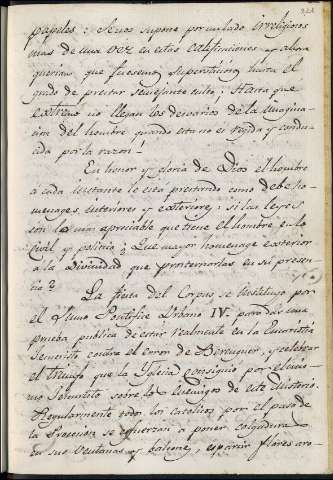 papeles: Se nos supone por un lado irreligiosos
mas de una vez en estas calificaciones y ahora
querian que fuesemos supersticiosos hasta el
grado de prestar semejante culto; Hasta que
extremo no llegan los desvarios de la imagina-
cion del hombre quando esta no es regida y condu-
cida por la razon!
En honor y gloria de Dios el hombre
a cada instante le está prestando como debe ho-
menages interiores y exteriores; si las leyes
son lo mas apreciable que tiene el hombre en lo
Civil y politico ¿Que mayor homenage exterior
a la Divinidad que prosternarlas en su presen-
cia?
La fiesta del Corpus se instituyó por
el Sumo Pontifice Urbano IV. para dar una
prueba publica de estar realmente en la Eucaristia
Jesucristo contra el error de Berenguer, y celebrar
el triunfo que la Yglesia consiguio por el mis-
mo Jesucristo sobre los enemigos de este Misterio.
Regularmente todos los catolicos por el paso de
la Procesion se esfuerzan a poner colgaduras
en sus ventanas y balcones, esparcir flores aro-